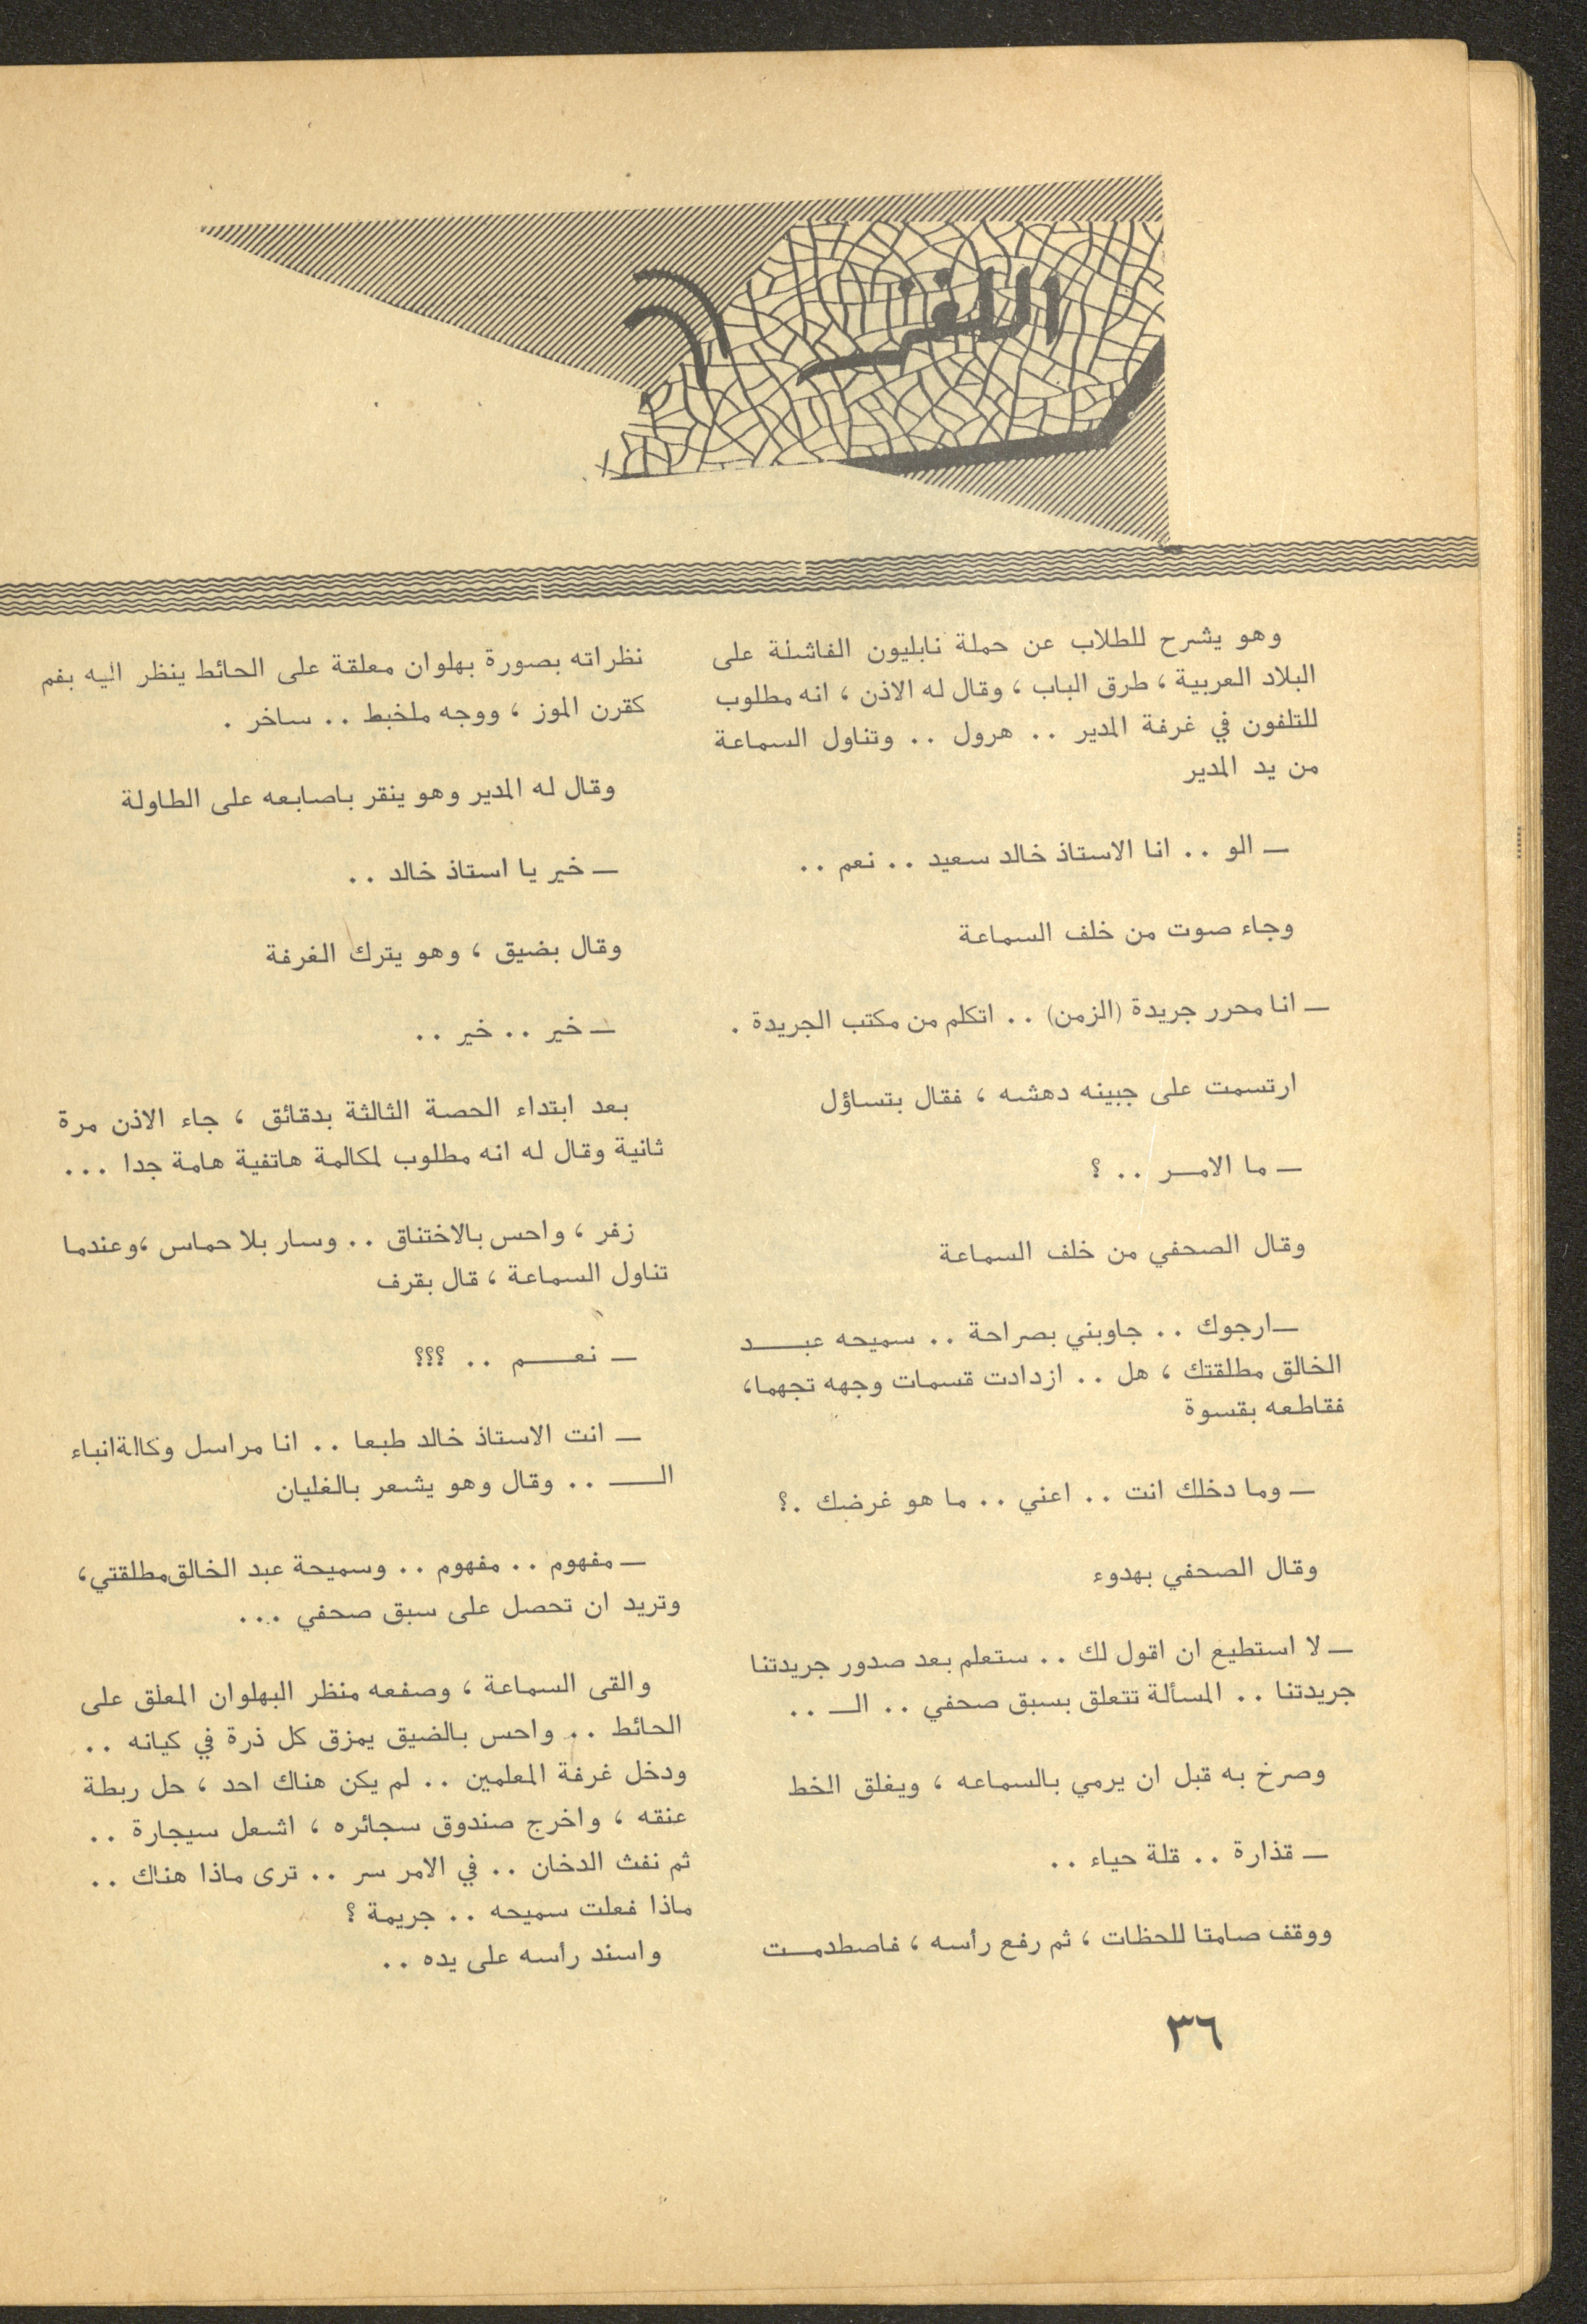 اللغز
وهو يشرح للطلاب عن حملة نابليون الفاشلة على
البلاد العربية ، طرق الباب ، وقال له الاذن ، انه مطلوب
للتلفون في غرفة المدير .. هرول .. وتناول السماعة
من يد المدير
ـ الو .. انا الاستاذ خالد سعيد .. نعم ..
وجاء صوت من خلف السماعة
ـ انا محرر جريدة (الزمن) .. اتكلم من مكتب الجريدة .
ارتسمت على جبينه دهشه ، فقال بتساؤل
ـ ما الامـر .. ؟
وقال الصحفي من خلف السماعة
ـارجوك .. جاوبني بصراحة .. سميحه عبـــد
الخالق مطلقتك ، هل .. ازدادت قسمات وجهه تجهما،
فقاطعه بقسوة
ـ وما دخلك انت .. اعني .. ما هو غرضك .؟
وقال الصحفي بهدوء
ـ لا استطيع ان اقول لك .. ستعلم بعد صدور جريدتنا
جريدتنا .. المسألة تتعلق بسبق صحفي .. الـ ..
وصرخ به قبل ان يرمي بالسماعه ، ويغلق الخط
ـ قذارة .. قلة حياء ..
ووقف صامتا للحظات ، ثم رفع رأسه ، فاصطدمـت
نظراته بصورة بهلوان معلقة على الحائط ينظر اليه بفم
كقرن الموز ، ووجه ملخبط .. ساخر .
وقال له المدير وهو ينقر باصابعه على الطاولة
ـ خير يا استاذ خالد ..
وقال بضيق ، وهو يترك الغرفة
ـ خير .. خير ..
بعد ابتداء الحصة الثالثة بدقائق ، جاء الاذن مرة
ثانية وقال له انه مطلوب لمكالمة هاتفية هامة جدا ...
زفر ، واحس بالاختناق .. وسار بلا حماس ،وعندما
تناول السماعة ، قال بقرف
ـ نعـــم .. ؟؟؟
ـ انت الاستاذ خالد طبعا .. انا مراسل وكالةانباء
الـــ .. وقال وهو يشعر بالغليان
ـ مفهوم .. مفهوم .. وسميحة عبد الخالق مطلقتي،
وتريد ان تحصل على سبق صحفي ...
والقى السماعة ، وصفعه منظر البهلوان المعلق على
الحائط .. واحس بالضيق يمزق كل ذرة في كيانه ..
ودخل غرفة المعلمين .. لم يكن هناك احد ، حل ربطة
عنقه ، واخرج صندوق سجائره ، اشعل سيجارة ..
ثم نفث الدخان .. في الامر سر .. ترى ماذا هناك ..
ماذا فعلت سميحه .. جريمة ؟
واسند رأسه على يده ..
٣٦